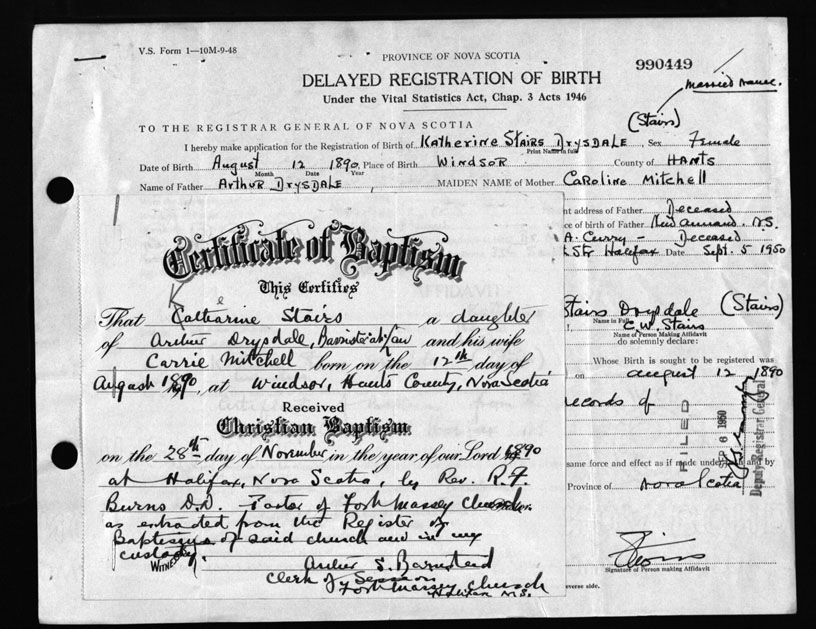 V.S. Form 1—10M-9-48
PROVINCE OF NOVA SCOTIA
990449
DELAYED REGISTRATION OF BIRTH
Married name.
Under the Vital Statistics Act, Chap. 3 Acts 1946
(Stairs)
TO THE REGISTRAR GENERAL OF NOVA SCOTIA
I hereby make application for the Registration of Birth of Katherine Stairs Drysdale, Sex Female
Print Name in full
Date of Birth August 12 1890, Place of Birth Windsor County of Hants
Month Date Year
Name of Father Arthur Drysdale MAIDEN NAME of Mother Caroline Mitchell
nt address of Father Deceased
ce of birth of Father New Annan N.S.
A. Curry - Deceased
St Halifax Date Sept. 5 1950
Stairs Drysdale (Stairs)
Name in Full
C.W. Stairs
Name of Person Making Affidavit
do solemnly declare:
Whose Birth is sought to be registered was
on August 12 1890
records of
FILED
SEP 6 1950
Deputy Registrar General
same force and effect as if made under and by
Province of Nova Scotia
Signature of Person making Affidavit
everse side.
Certificate of Baptism
This Certifies
K e
That Catharine Stairs a daughter
of Arthur Drysdale, Barrister at law and his wife
Carrie Mitchell born on the 12th day of
August 1890, at Windsor, Hants County, Nova Scotia
Received
Christian Baptism
on the 28th day of November in the year of our Lord 1890
at Halifax, Nova Scotia, by Rev. R.F.
Burns D.D. Pastor of Fort Massey Church
as extracted from the Register of
Baptisms of said church and in my
custody.
WITNESS
Arthur S. Barnstead
Clerk of Session
Fort Massey Church
Halifax N.S.